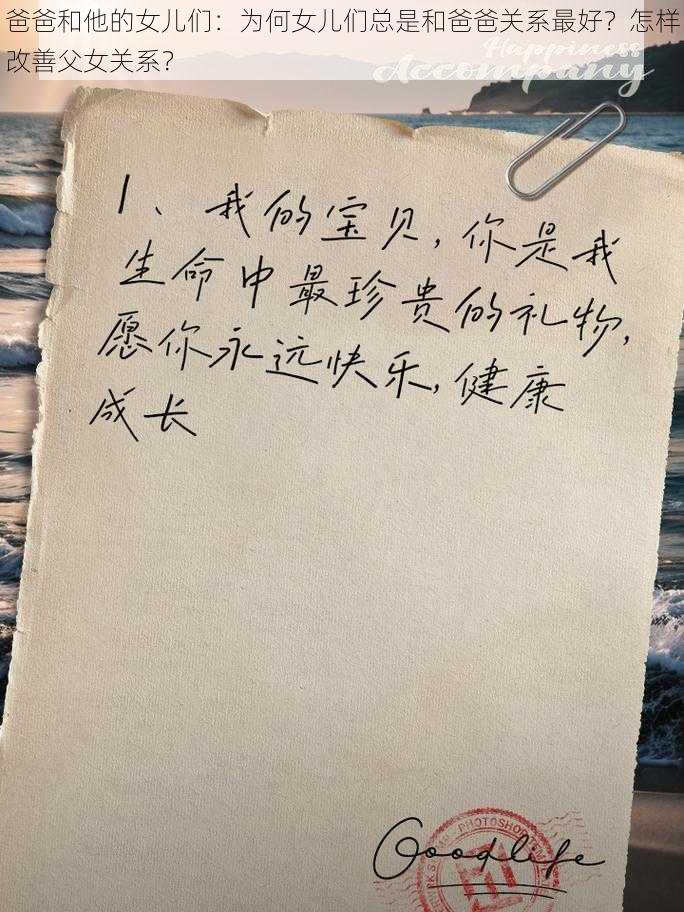 爸爸和他的女儿们：为何女儿们总是和爸爸关系最好？怎样
改善父女关系？
Happiness
Accompany
1、我的宝贝，你是我
生命中最珍贵的礼物，
愿你永远快乐，健康
成长
PHOTOSHOP
Goodlife